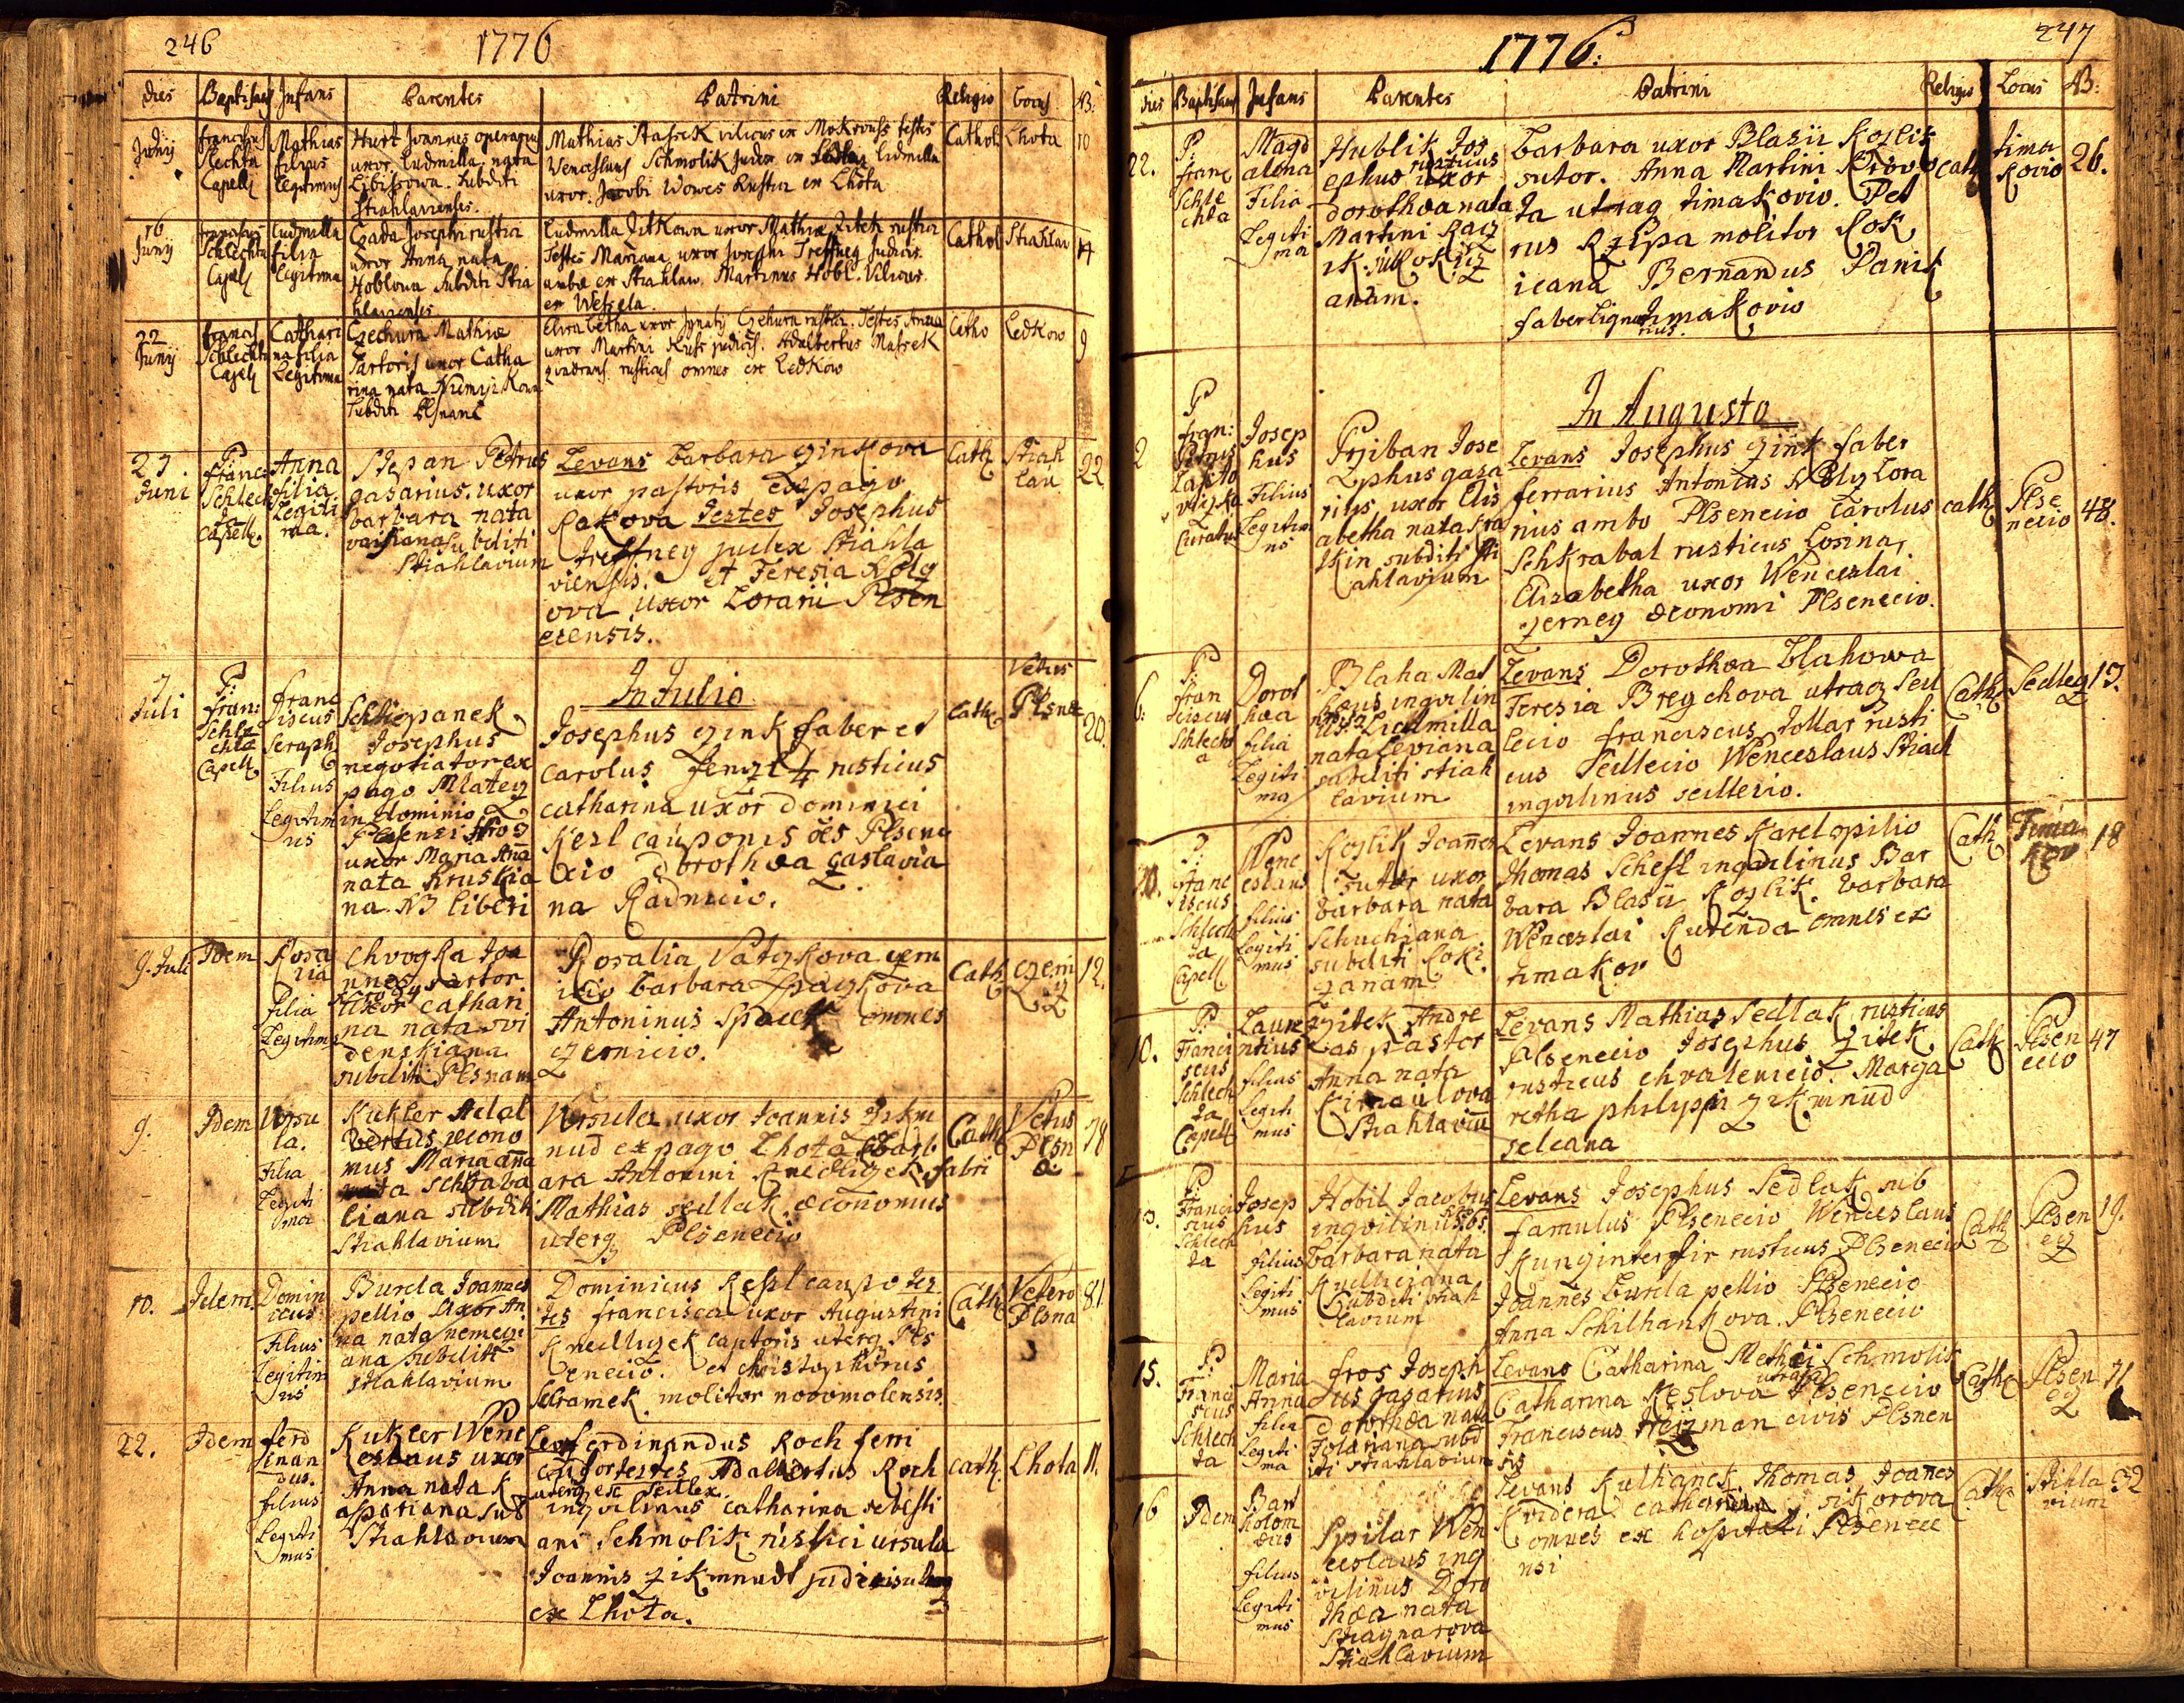 246
1776
dies Baptisans Infans Parentes Patrini Religio Locus N3:
Junij
Franciscus
Slechta
Capell
Mathias
filius
Legitimus
Hurt Joannes operarius
uxor Ludmilla nata
subditi
Stiahlavienses.
Mathias Massek vilicus ex Mokrouss testes
Wenceslaus Schmolik Judex ex Lhota Ludmilla
uxor Jacobi Wowes Rustici ex Lhota
Cathol
Lhota
10
16
Junij
Franciscus
Schlechta
Capell
Ludmilla
filia
Legitima
Czada Josephi rustici
uxor Anna nata
Hoblowa subditi Stia
hlavienses
Ludmilla Zitkowa uxor Mathiæ Zitek rustici
Testes Mariana uxor Josephi Treffney Judicis
ambæ ex Stiahlaw. Martinus Hobl. Vilicus
ex Wetzela
Cathol
Stiahlau
14
22
Junij
Francis
Schlechta
Capell
Cathari
na filia
Legitima
Czechura Mathiæ
Sartoris uxor Catha
rina nata
Subditi Plsnani
Elisabetha uxor Ignatij Czehura rustici. Testes Anna
uxor Martini Kuss judicis. Adalbertus Massek
rusticus omnes ex Ledkow
Catho
Ledkow
9
27.
Juni
P.
Franc:
Schlech
ta
Capell.
Anna
filia
Legiti
ma.
Stepan Petrus
gasarius. uxor
barbara nata
subditi
Stiahlavium
Levans Barbara Zinkova
uxor pastoris Ex pago
Rakova Testes Josephus
Treffney judex Stiahla
viensis. et Teresia Rolg
ova uxor Lorarii Plsen
ecensis.
Cath
Stiah
lau
22
In Julio
7
Juli
P:
fran:
Schle
chta
Capell
Franc
iscus
Seraph
Filius
Legitim
us
Schtiepanek
Josephus
negotiator ex
pago Mlatez
in dominio
uxor Maria Ana
nata Kruskia
na. N3 liberi
Josephus Zink faber et
carolus rusticus
catharina uxor dominici
Kesl cauponis oēs Plsene
cio Dorothæa Gaslavia
na Radnicio.
Cath.
Vetus
Plsne
20.
9. Juli
Idem
Rosa
lia
Filia
Legitima
Chvogka Joa
nnes sartor
uxor cathari
na nata wi
denskiana
subditi Plsnam
Rosalia Vatzkova czern
icio barbara Spaczkova
Antoninus Spacek omnes
czernicio.
Cath
czerni
cz
12.
9.
Idem
Ursu
la.
Filia
Legiti
ma
Kukler Adal
bertus œcono
mus Maria ana
nata Schkraba
liana subditi
Stiahlavium
Ursula uxor Joannis Zikm
und ex pago Lhota Barb
ara Antonini Knedlizek fabri
Mathias sedlak œconomus
uterq Plsenecio
Cath
Vetus
Plsn
a
78
10.
Idem
Domin
icus
Filius
Legitim
us
Burda Joannes
pellio Uxor An
na nata nemeczi
ana subditi
Stiahlavium
Dominicus Kesl caupo Tes
tes francisca uxor Augustini
Knedlizek captoris uterq Pls
enecio. et christophorus
Schramek molitor novomolensis.
Cath
Vetero
Plsna
81
22.
Idem
ferd
inan
dus.
filius
Legiti
mus
Kukler Wenc
eslaus uxor
Anna nata K
aspariana sub
Stiahlavium
Lev. ferdinandus Koch ferri
testes Adalbertus Koch
uterq ex Sedlex.
inquilinus catharina sebasti
ani Schmolik rustici ursula
Joannis Zikmund judicis
ex Lhota.
cath.
Lhota
11.
1776:
247
dies Baptisans Infans Parentes Patrini Religio Locus N3:
22.
P:
franc
Schle
chta
Magd
alena
Filia
Legiti
ma
Hublik Jos
ephus rusticus uxor
dorothæa nata
Martini
anam.
Barbara uxor Blasii Kozlik
sutor. Anna Martini
ta utraq timakovio. Pet
rus Rzipa molitor Rok
icana Bernardus Panik
faber lignarius timakovio
cath
tima
kovio
26.
In Augusto
2
P
fran:
Capto
Curatus
Josep
hus
Filius
Legitim
us
Prziban Jose
phus gasa
rius uxor Elis
abetha nata
subditi Sti
ahlavium
Levans Josephus Zink faber
ferrarius Antonius Lora
rius ambo Plsenecio Carolus
Schkrabal rusticus Losina,
Elisabetha uxor Wenceslai
Zerney œconomi Plsenecio.
cath
Plse
necio
48.
6.
P
fran
ciscus
Schlecht
a
Dorot
hæa
filia
Legiti
ma
Blaha Mat
hæus inqvilin
us. Ludmilla
nata Leviana
subditi stiah
lavium
Levans Dorothæa Blahowa
Teresia Bregchova utraq Sed
lecio franciscus Tollar rusti
cus Sedlecio Wenceslaus
inqvilinus sedlecio.
Cath
Sedlez
13.
10.
P:
Franc
iscus
Schlech
ta
Capell
Wenc
eslaus
filius
Legiti
mus
Kozlik Joannes
sutor uxor
barbara nata
Schuchiana
subditi Roki
zanam
Levans Joannes Karel opilio
Thomas Schefl inqvilinus Bar
bara Blasii Kozlik. barbara
Wenceslai Kurenda omnes ex
timakov
Cath
Tima
kov
18
10.
P:
Franci
scus
Schlech
ta
Capell
Laure
ntius
filius
Legiti
mus
Zitek Andre
as pastor
Anna nata
Stiahlaviū
Levans Mathias Sedlak rusticus
Plsenecio Josephus Zitek
rusticus chvalenicio. Marga
retha philippi Zikmund
seleana
Cath
Plsen
ecio
47
13.
P.
Franci
scus
Schlech
ta
Josep
hus
filius
Legiti
mus
Hobil Jacobus
inqvilinus
barbara nata
Kudliciana
Subditi stiah
lavium
Levans Josephus Sedlak sub
famulus Plsenecio Wenceslaus
rusticus Plsenecio
Joannes Burda pellio Plsenecio
Anna Schilhankova. Plsenecio
Cath
Plsen
ecz
19.
15.
P
Franci
scus
Schlech
ta
Maria
Anna
filia
Legiti
ma
fros Joseph
us gasarius
dorothæa nata
Tolariana subd
iti stiahlavium
Levans Catharina Mathæi Schmolik
Catharina Keslova utraq Plsenecio
Franciscus civis Plsnen
sis
Cath
Plsen
ecz
71
16
Idem
Bart
holom
æus
filius
Legiti
mus
Spilar Wen
ceslaus inq
vilinus Doro
thæa nata
Stiahlavium
Levans Kulhanek Thomas Joanes
Kvidera catharina sikorova
omnes ex hospitali Plsenec
nsi
Cath
Stihla
vium
32